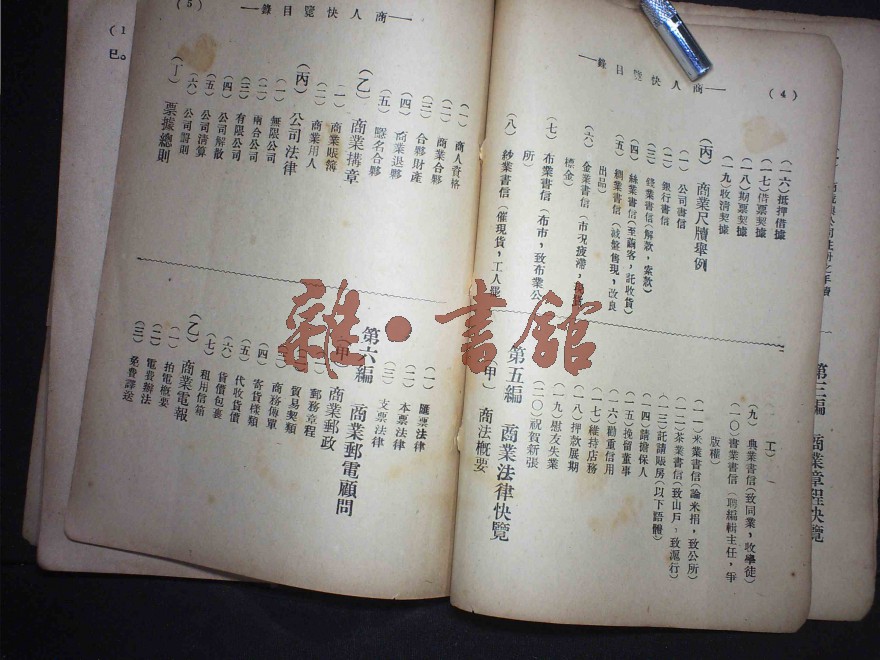 第三編　商業章程快覽
(4)
商人快覽目錄
(一六)抵押借據
(一七)借票契據
(一八)期票契據
(一九)收清契據
(丙)　商業尺牘舉例
(一)公司書信
(二)銀行書信
(三)錢業書信(解款，索款)
(四)絲業書信(至繭客，託收貨)
(五)綢業書信(減盤售現，改良
出品)
(六)金業書信(市况疲滯，
標金)
(七)布業書信(布市，致布業公
所)
(八)紗業書信(催現貨，工人罷
工)
(九)典業書信(致同業，收學徒)
(一〇)書業書信(聘編輯主任，爭
版權)
(一一)米業書信(論米捐，致公所)
(一二)茶業書信(致山戶，致滬行)
(一三)託請賬房(以下語體)
(一四)請擔保人
(一五)挽留董事
(一六)勸重信用
(一七)維持店務
(一八)押款展期
(一九)慰友失業
(二〇)祝賀新張
第五編　商業法律快覽
(甲)　商法概要
(5)
商人快覽目錄
(一)商人資格
(二)商業合夥
(三)合夥財產
(四)商業退夥
(五)隱名合夥
(乙)　商業搆章
(一)商業賬簿
(二)商業用人
(丙)　公司法律
(一)無限公司
(二)兩合公司
(三)有限公司
(四)公司解散
(五)公司清算
(六)公司罰則
(丁)　票據總則
(一)匯票法律
(二)本票法律
(三)支票法律
第六編　商業郵電顧問
(甲)　商業郵政
(一)郵務章程
(二)貿易契類
(三)商務傳單
(四)寄貨樣類
(五)代收貨價
(六)貨價包裹
(七)租用信箱
(乙)　商業電報
(一)拍電概要
(二)電費辦法
(三)免費譯送
雜·書館